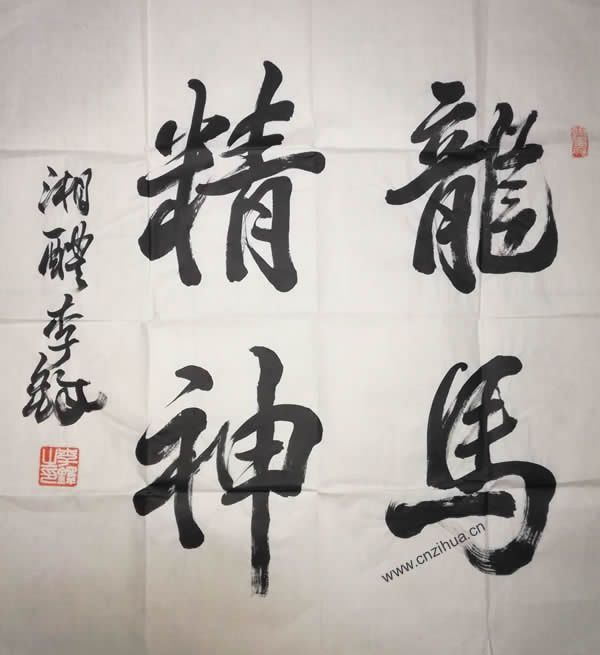 龍马
精神
湘醴李铎
www.cnzihua.cn